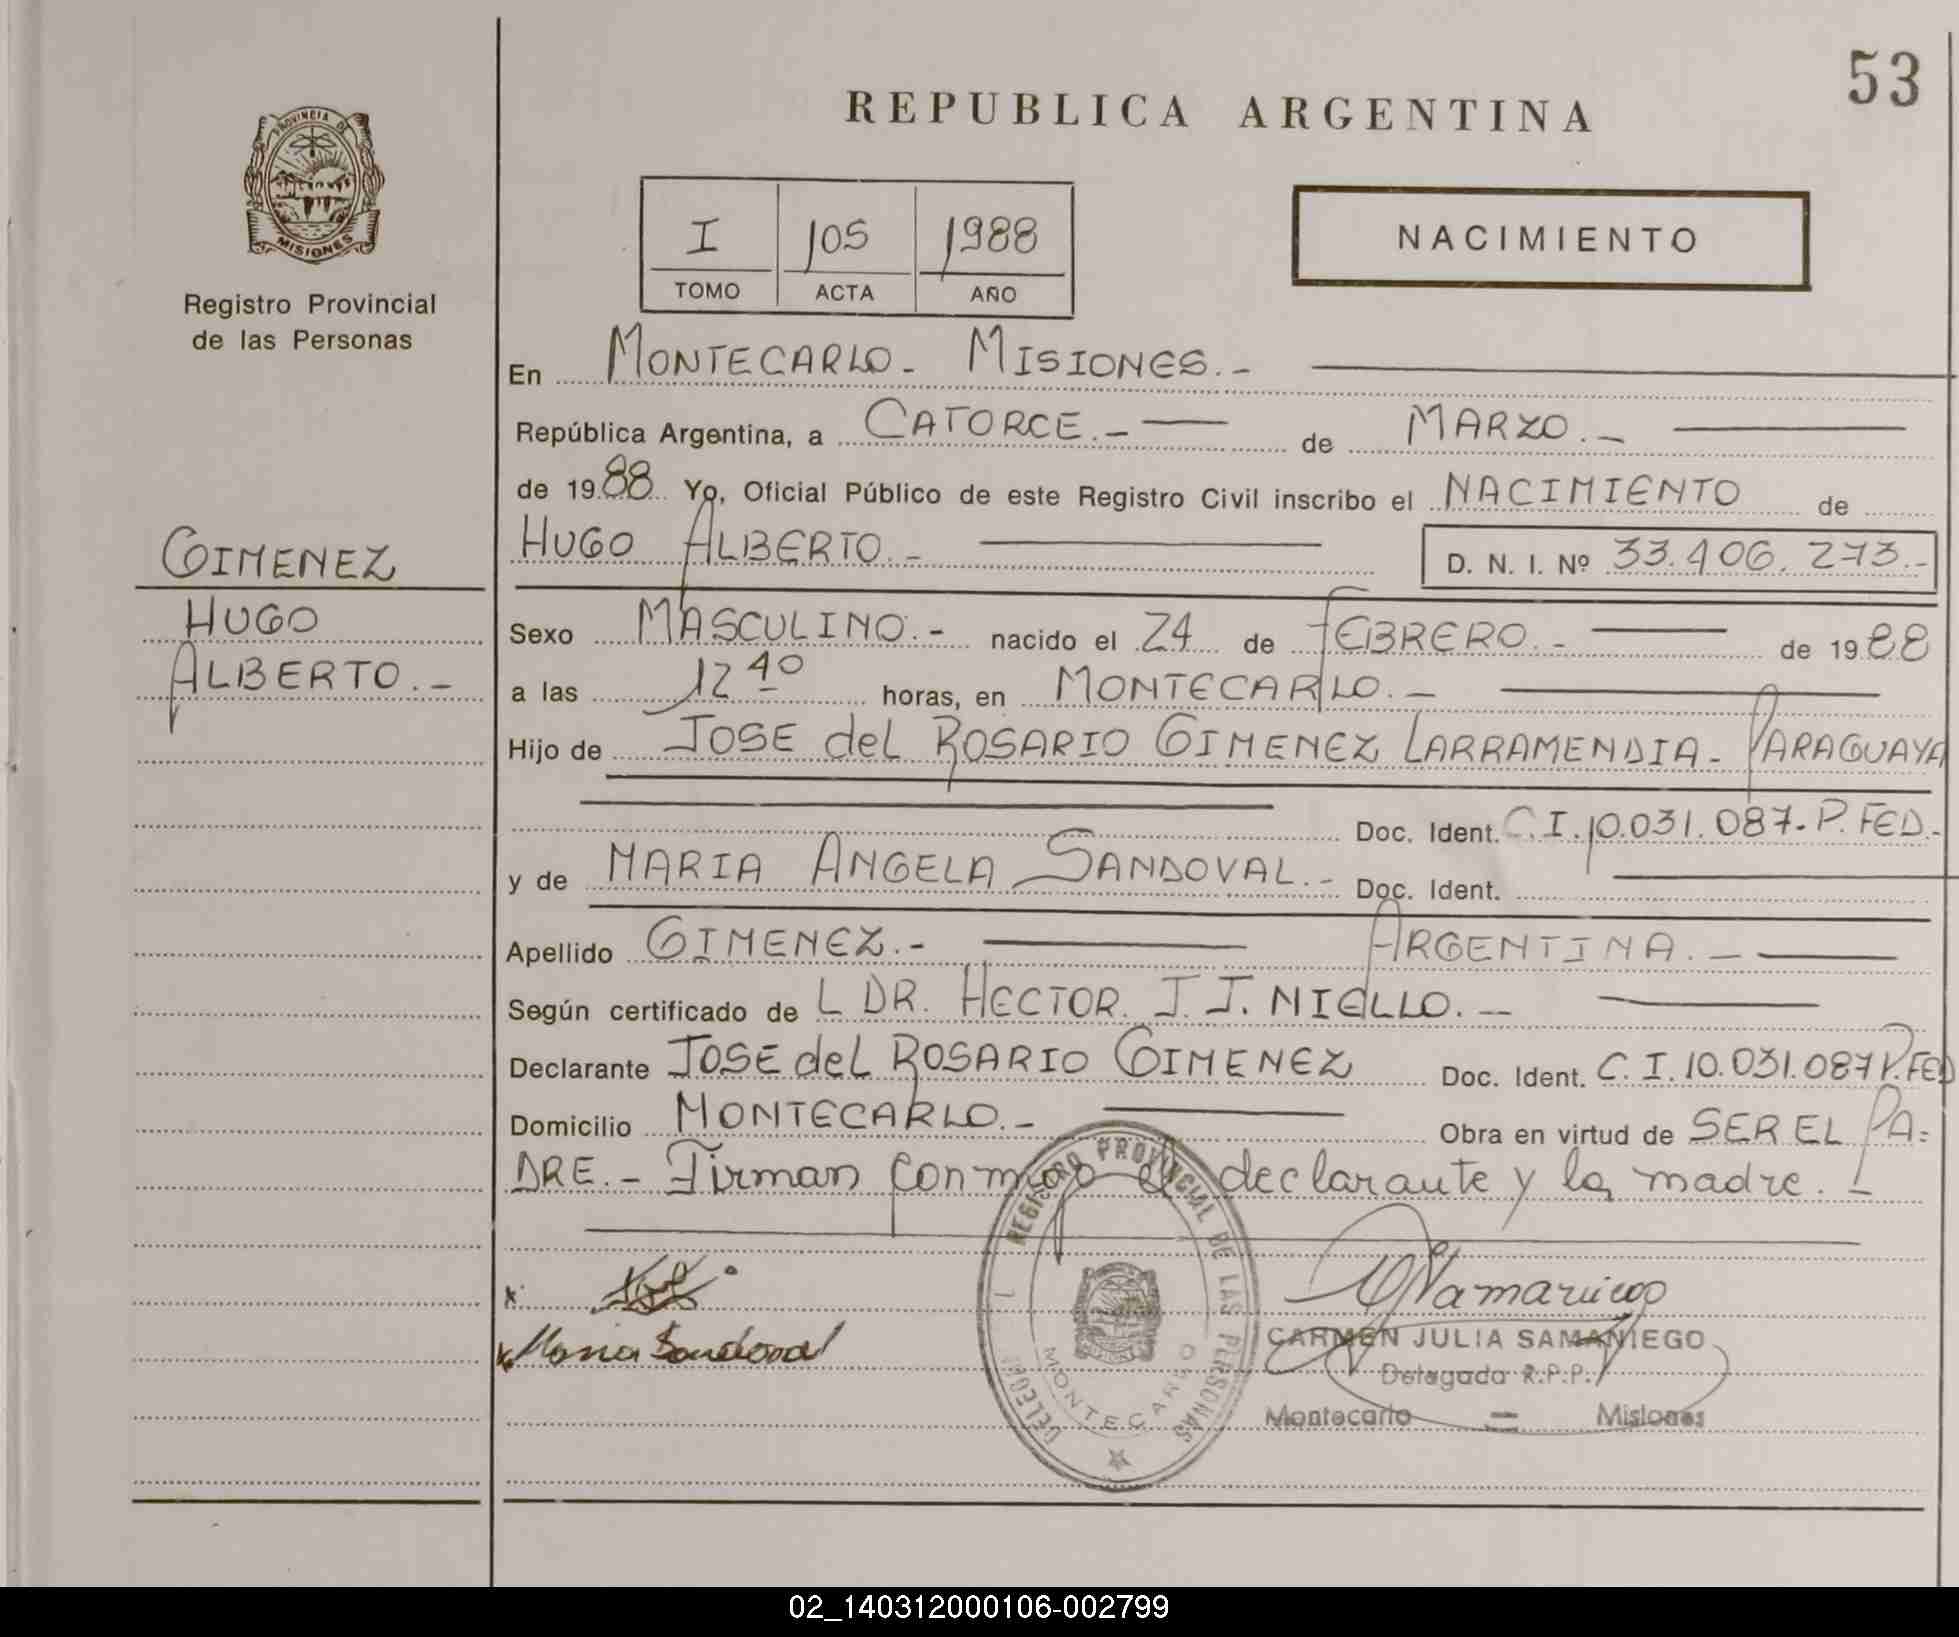 53
REPUBLICA ARGENTINA
PROVINCIA DE
MISIONES
Registro Provincial
de las Personas
I 105 1988
TOMO ACTA AÑO
NACIMIENTO
En MONTECARLO - MISIONES.-
República Argentina, a CATORCE.- de MARZO.-
de 1988 Yo, Oficial Público de este Registro Civil inscribo el NACIMIENTO de
HUGO ALBERTO.- D. N. I. Nº 33.406.273.-
GIMENEZ
HUGO
ALBERTO.-
Sexo MASCULINO.- nacido el 24 de FEBRERO.- de 1988
a las 12 40 horas, en MONTECARLO.-
Hijo de JOSE del ROSARIO GIMENEZ LARRAMENDIA - PARAGUAYA
Doc. Ident. C.I.10.031.087-P.FED.-
y de MARIA ANGELA SANDOVAL.- Doc. Ident.
Apellido GIMENEZ.- ARGENTINA.-
Según certificado de L DR. HECTOR J.J. NIELLO.-
Declarante JOSE del ROSARIO GIMENEZ Doc. Ident. C.I.10.031.087 P.FED
Domicilio MONTECARLO.- Obra en virtud de SER EL PA-
DRE.- Firman conmigo el declarante y la madre.-
REGISTRO PROVINCIAL DE LAS PERSONAS
MONTECARLO
Maria Sandoval
CARMEN JULIA SAMANIEGO
Delegada R.P.P.
Montecarlo - Misiones
02_140312000106-002799